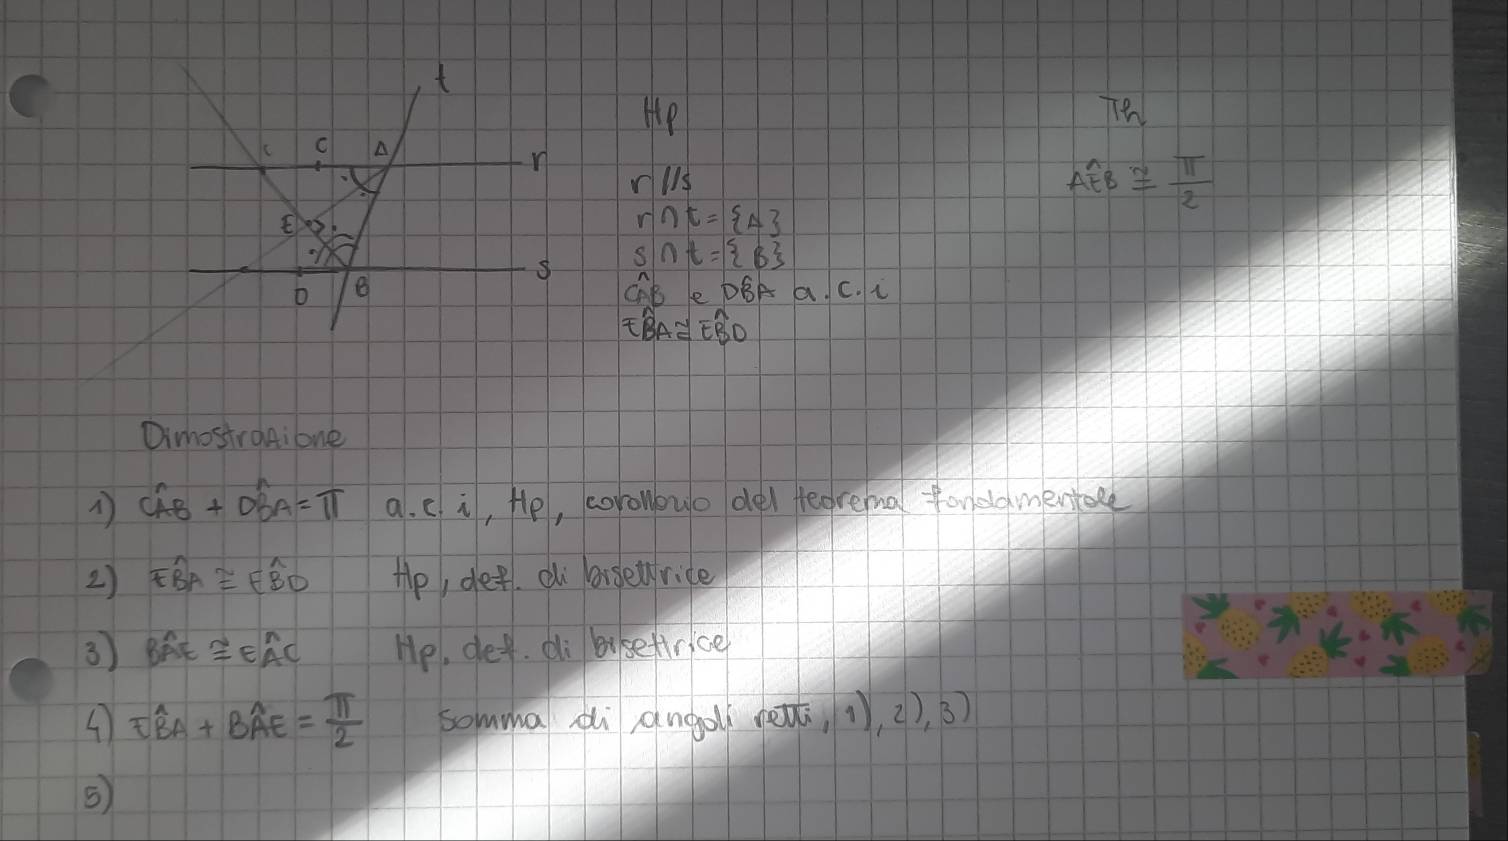 t
C A r
E
s
D B
Hp
r//s
r∩t={A}
s∩t={B}
CÂB e DB̂A a.c.i
EB̂A≅EB̂D
Th
AÊB ≅ π/2
Dimostrazione
1) CÂB + DB̂A = π a.c.i, Hp, corollario del teorema fondamentale
2) EB̂A ≅ EB̂D Hp, def. di bisettrice
3) BÂE ≅ EÂC Hp. def. di bisettrice
4) EB̂A + BÂE = π/2 somma di angoli retti, 1), 2), 3)
5)